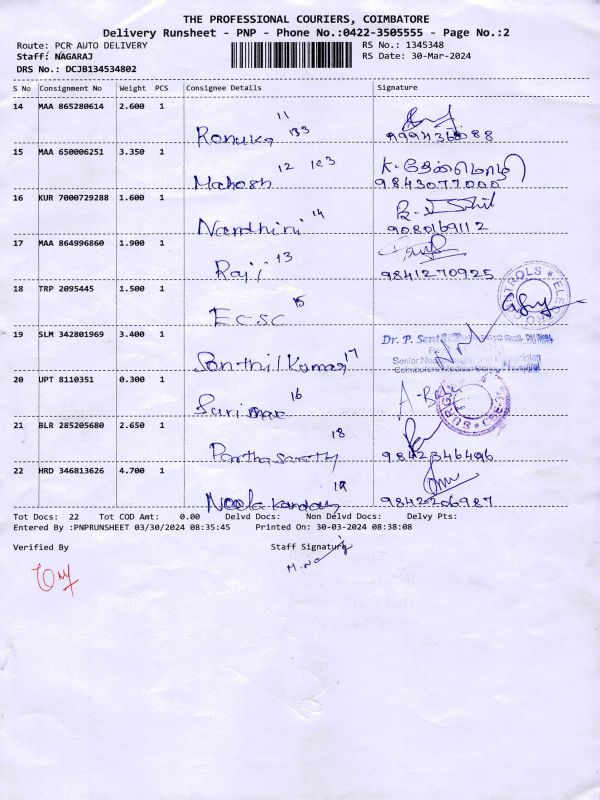 THE PROFESSIONAL COURIERS, COIMBATORE
Delivery Runsheet - PNP - Phone No.:0422-3505555 - Page No.:2
Route: PCR AUTO DELIVERY RS No.: 1345348
Staff: NAGARAJ RS Date: 30-Mar-2024
DRS No.: DCJB134534802
S No Consignment No Weight PCS Consignee Details Signature
14 MAA 865280614 2.600 1
11
Renuka 133
15 MAA 650006251 3.350 1
12 103
Mahesh 9843077000
16 KUR 7000729288 1.600 1
14
Nandhini 9080169112
17 MAA 864996860 1.900 1
13
Raji 9841270925
18 TRP 2095445 1.500 1
15
ECSC
19 SLM 342801969 3.400 1
Dr. P.
17
Senthil Kumar
20 UPT 8110351 0.300 1
16
21 BLR 285205680 2.650 1
18
Parthasarathy 9842346496
22 HRD 346813626 4.700 1
19
Neelakandan 9842206987
Tot Docs: 22 Tot COD Amt: 0.00 Delvd Docs: Non Delvd Docs: Delvy Pts:
Entered By :PNPRUNSHEET 03/30/2024 08:35:45 Printed On: 30-03-2024 08:38:08
Verified By Staff Signature